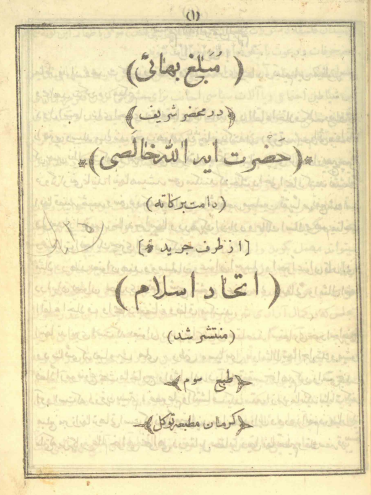 (۱)
(مُبلغ بهائی)
﴿در محضر شریف﴾
*(حضرت ایه الله خالصی)*
(دامت برکاته)
[از طرف جریده]
(اتحاد اسلام)
(منتشر شد)
﴿طبع سوم﴾
﴿کرمان مطبعه توکل﴾